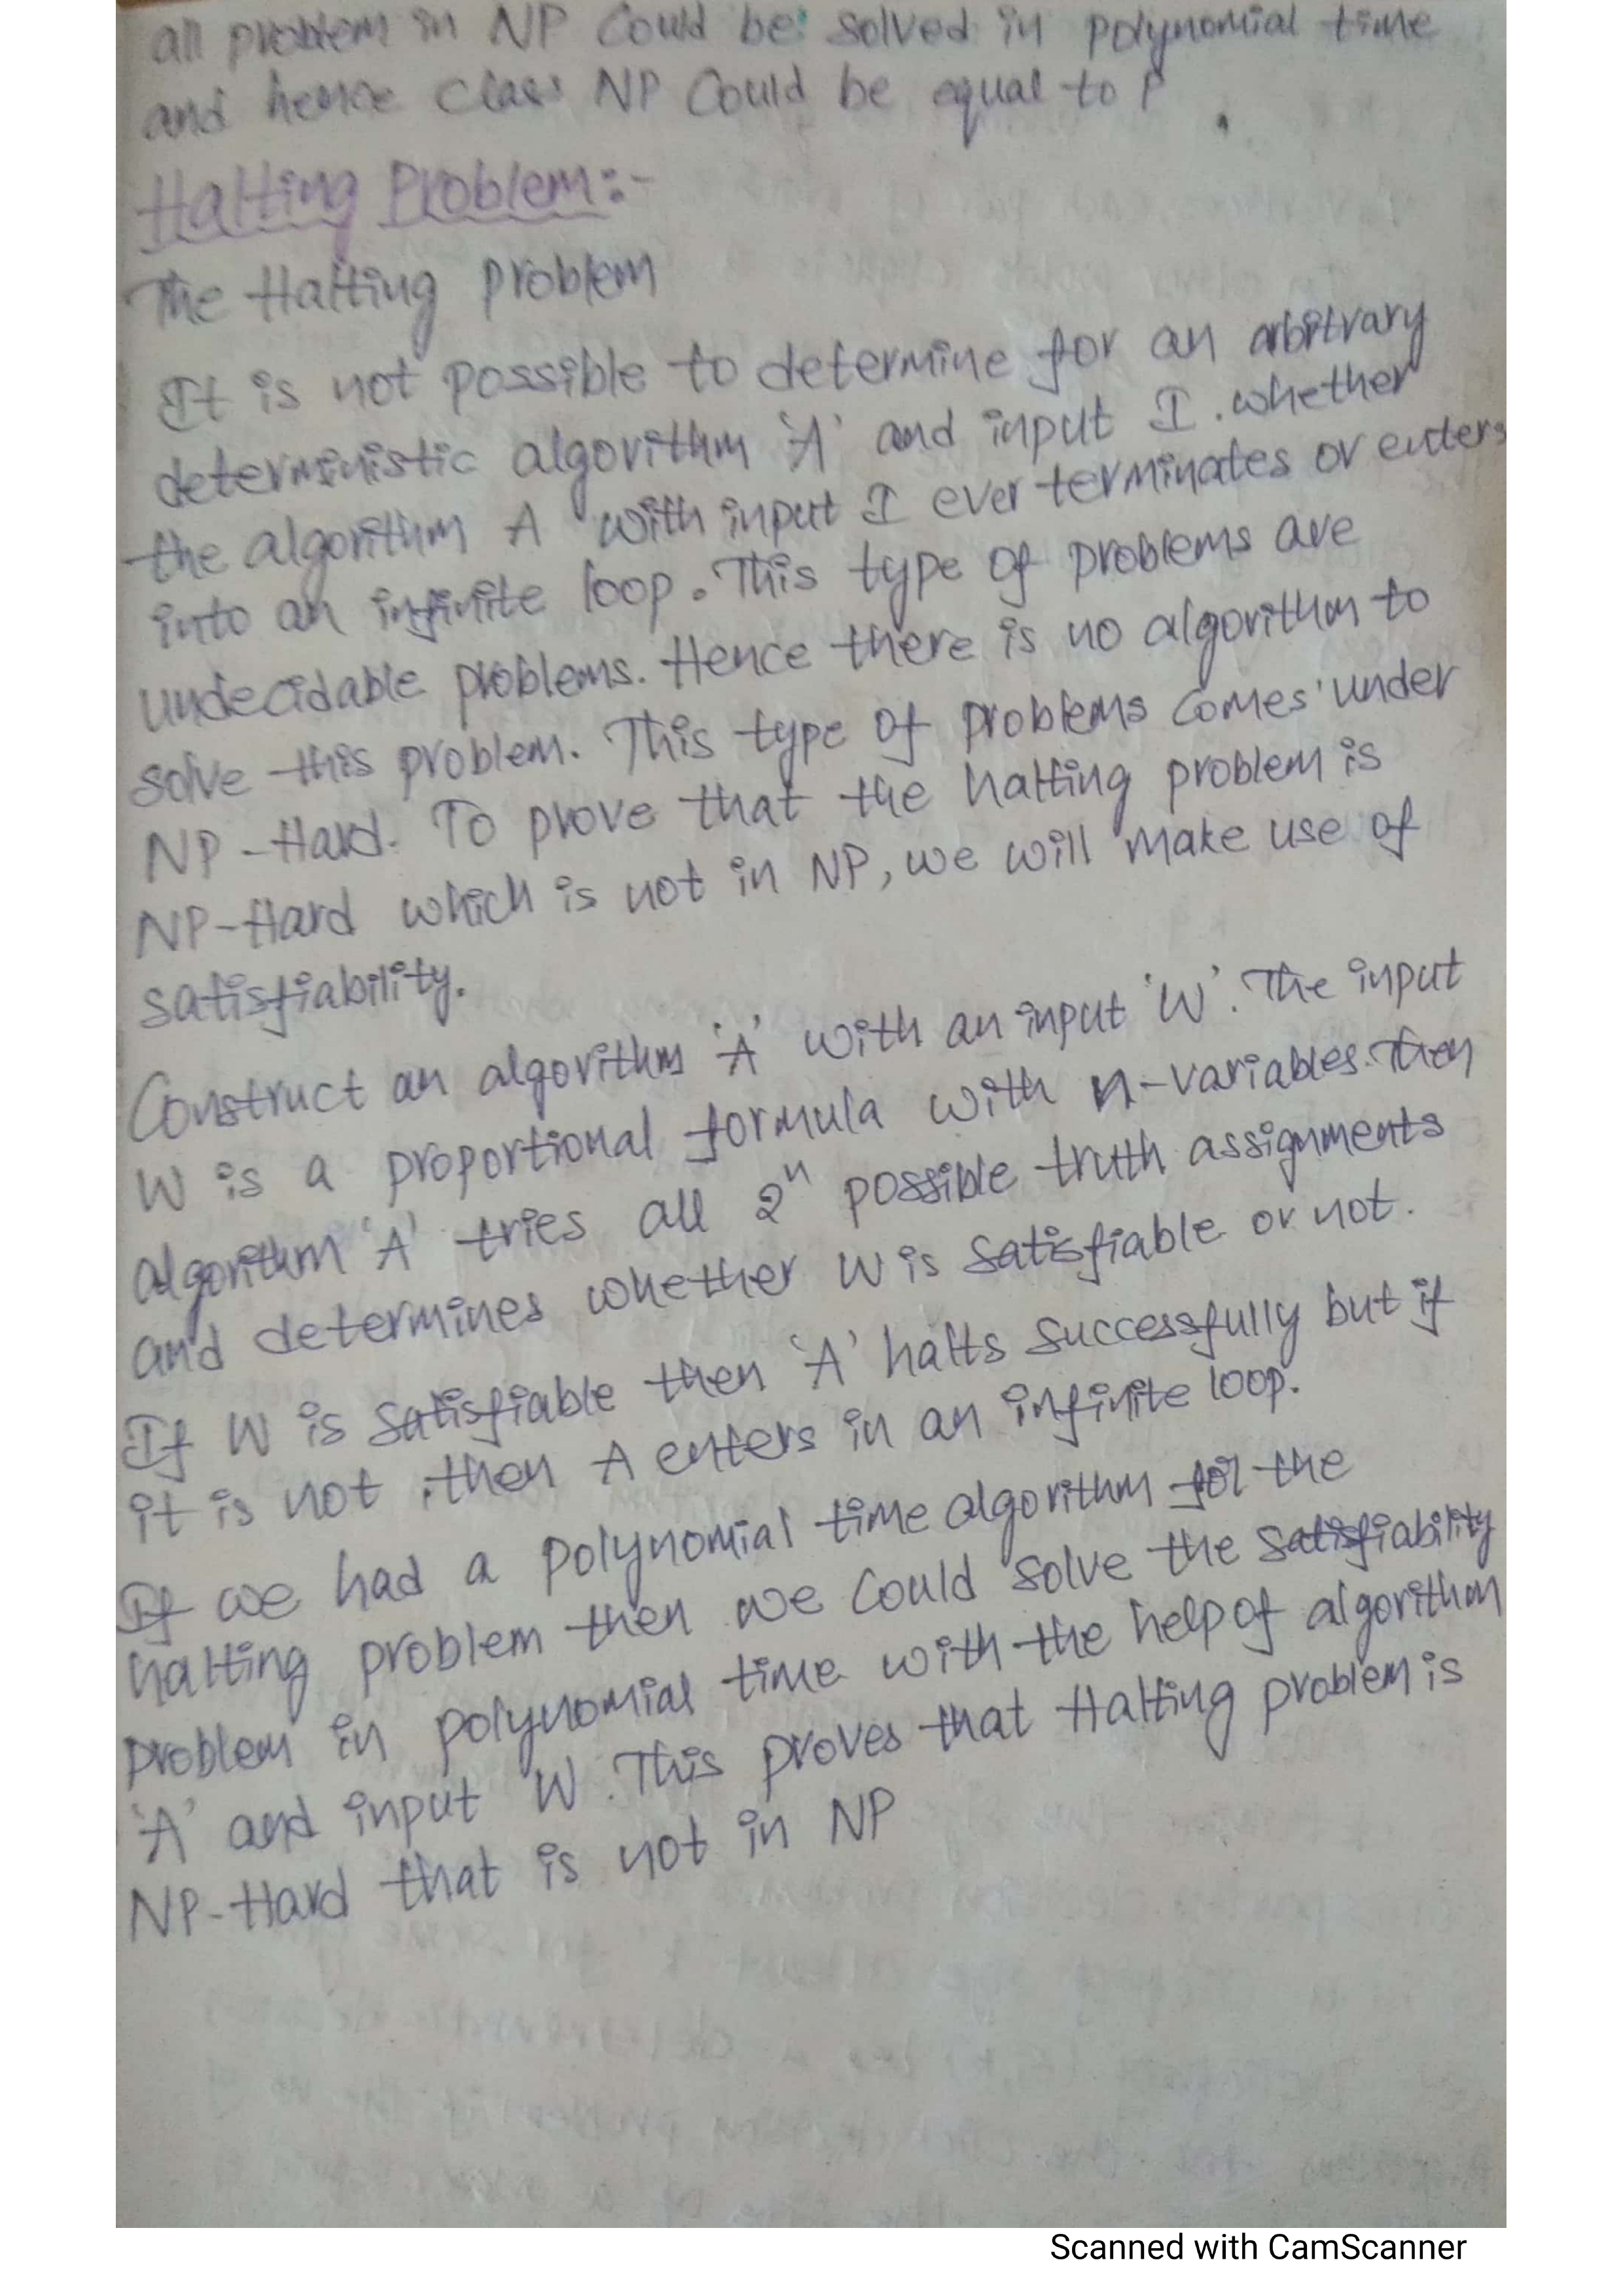 all problem in NP Could be solved in polynomial time
and hence class NP Could be equal to P
Halting Problem:-
The Halting problem
It is not possible to determine for an arbitrary
deterministic algorithm 'A' and input I. whether
the algorithm A with input I ever terminates or enters
into an infinite loop. This type of problems are
undecidable problems. Hence there is no algorithm to
solve this problem. This type of problems comes under
NP-Hard. To prove that the halting problem is
NP-Hard which is not in NP, we will make use of
satisfiability.
Construct an algorithm 'A' with an input 'W'. The input
W is a proportional formula with n-variables. Then
algorithm 'A' tries all 2ⁿ possible truth assignments
and determines whether W is satisfiable or not.
If W is satisfiable then 'A' halts successfully but if
it is not, then A enters in an infinite loop.
If we had a polynomial time algorithm for the
halting problem then we could solve the satisfiability
problem in polynomial time with the help of algorithm
'A' and input W. This proves that Halting problem is
NP-Hard that is not in NP
Scanned with CamScanner